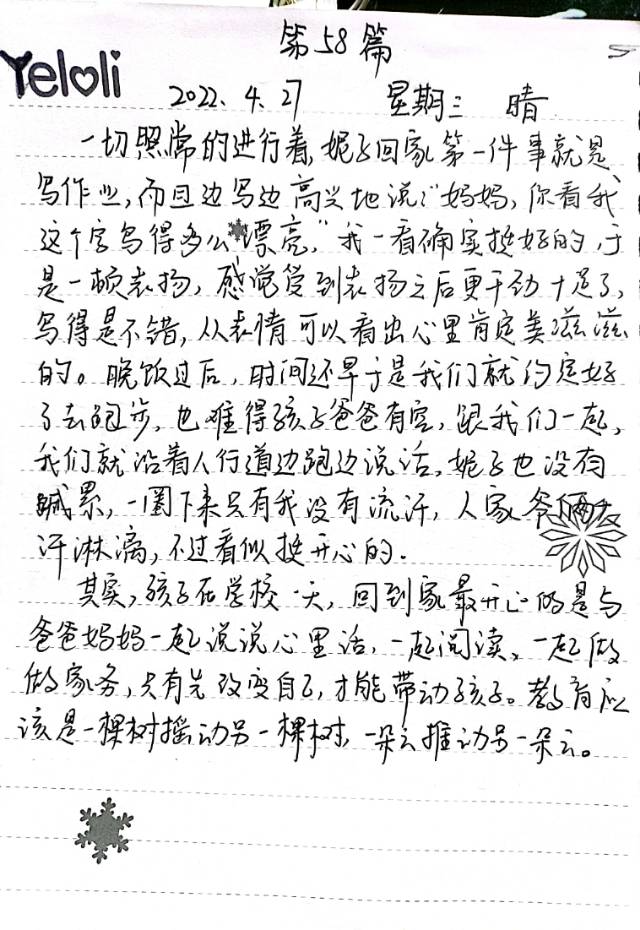 第58篇
Yeloli
2022.4.27 星期三 晴
一切照常的进行着,妮子回家第一件事就是
写作业,而且边写边高兴地说:“妈妈,你看我
这个字写得多么漂亮,”我一看确实挺好的,于
是一顿表扬,感觉受到表扬之后更干劲十足了,
写得是不错,从表情可以看出心里肯定美滋滋
的。晚饭过后,时间还早于是我们就约定好
了去跑步,也难得孩子爸爸有空,跟我们一起,
我们就沿着人行道边跑边说话,妮子也没有
喊累,一圈下来只有我没有流汗,人家爷俩大
汗淋漓,不过看似挺开心的.
其实,孩子在学校一天,回到家最开心的是与
爸爸妈妈一起说说心里话,一起阅读、一起做
做家务,只有先改变自己,才能带动孩子。教育应
该是一棵树摇动另一棵树,一朵云推动另一朵云。